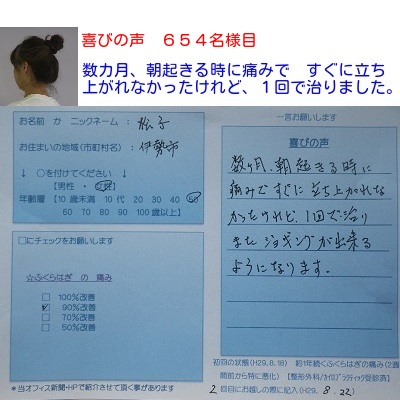 喜びの声　６５４名様目
数カ月、朝起きる時に痛みで　すぐに立ち
上がれなかったけれど、１回で治りました。
お名前 か ニックネーム： 松子
お住まいの地域（市町村名）： 伊勢市
↓　○を付けてください　↓
【男性 ・ 女性】
年齢層【10 歳未満　10 代　20　30　40　50
60　70　80　90　100 歳以上】
□にチェックをお願いします
☆ふくらはぎ　の　痛み
□ 100%改善
☑ 90%改善
□ 70%改善
□ 50%改善
＊当オフィス新聞・HPで紹介させて頂く事があります
一言お願いします
喜びの声
数ヶ月、朝起きる時に
痛みですぐに立ち上がれな
かったけれど、1回で治り
またジョギングが出来る
ようになります。
初回の状態（H29, 8, 18）　約1年続くふくらはぎの痛み（2週
間前から特に悪化）【整形外科/カイロプラクティック受診済】
2 回目にお越しの際に記入（H29, 8. 22）